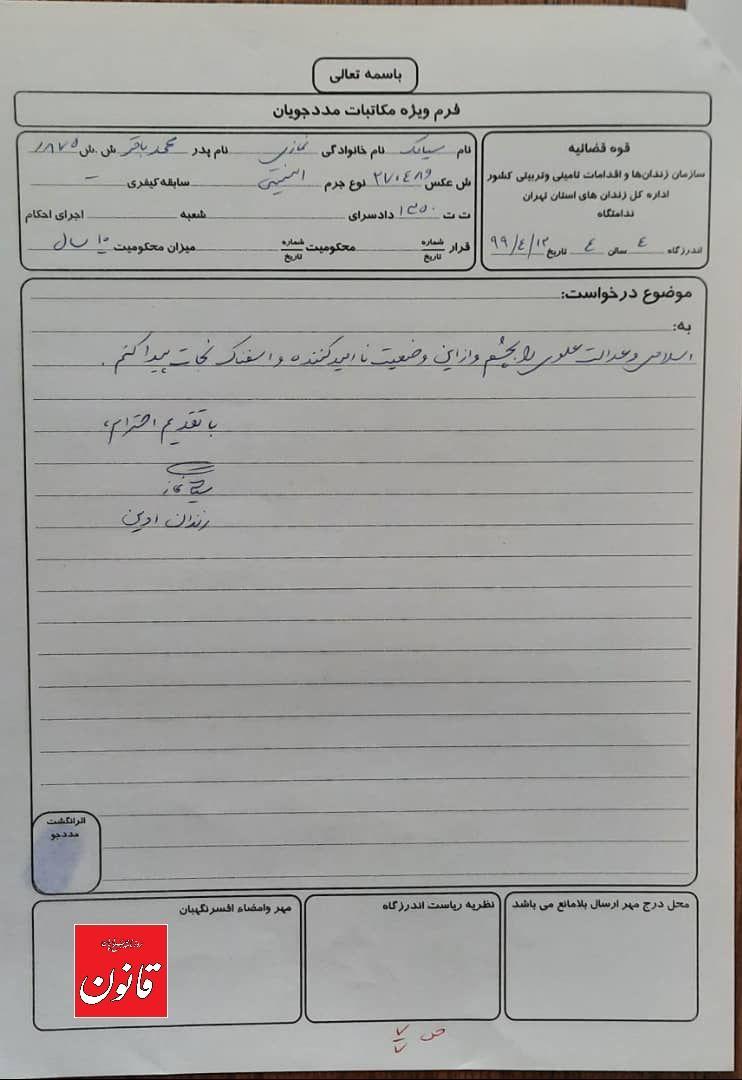 باسمه تعالی
فرم ویژه مکاتبات مددجویان
قوه قضائیه
سازمان زندان‌ها و اقدامات تامینی وتربیتی کشور
اداره کل زندان های استان تهران
ندامتگاه
اندرزگاه ٤ سالن ٤ تاریخ ۹۹/٤/۱۲
نام سیامک نام خانوادگی نمازی نام پدر محمد باقر ش.ش ۱۸۷۵
ش عکس ۲۷۰٤۸۶ نوع جرم امنیتی سابقه کیفری –
ت ت ۱۳۵۰ دادسرای شعبه اجرای احکام
قرار شماره تاریخ محکومیت شماره تاریخ میزان محکومیت ۱۰ سال
موضوع درخواست:
به:
اسلامی و عدالت علوی را بچشم و از این وضعیت نا امید کننده و اسفناک نجات پیدا کنم.
با تقدیم احترام،
سیامک نمازی
زندان اوین
اثرانگشت
مددجو
محل درج مهر ارسال بلامانع می باشد
نظریه ریاست اندرزگاه
مهر وامضاء افسرنگهبان
قانون
ص ۷/۷